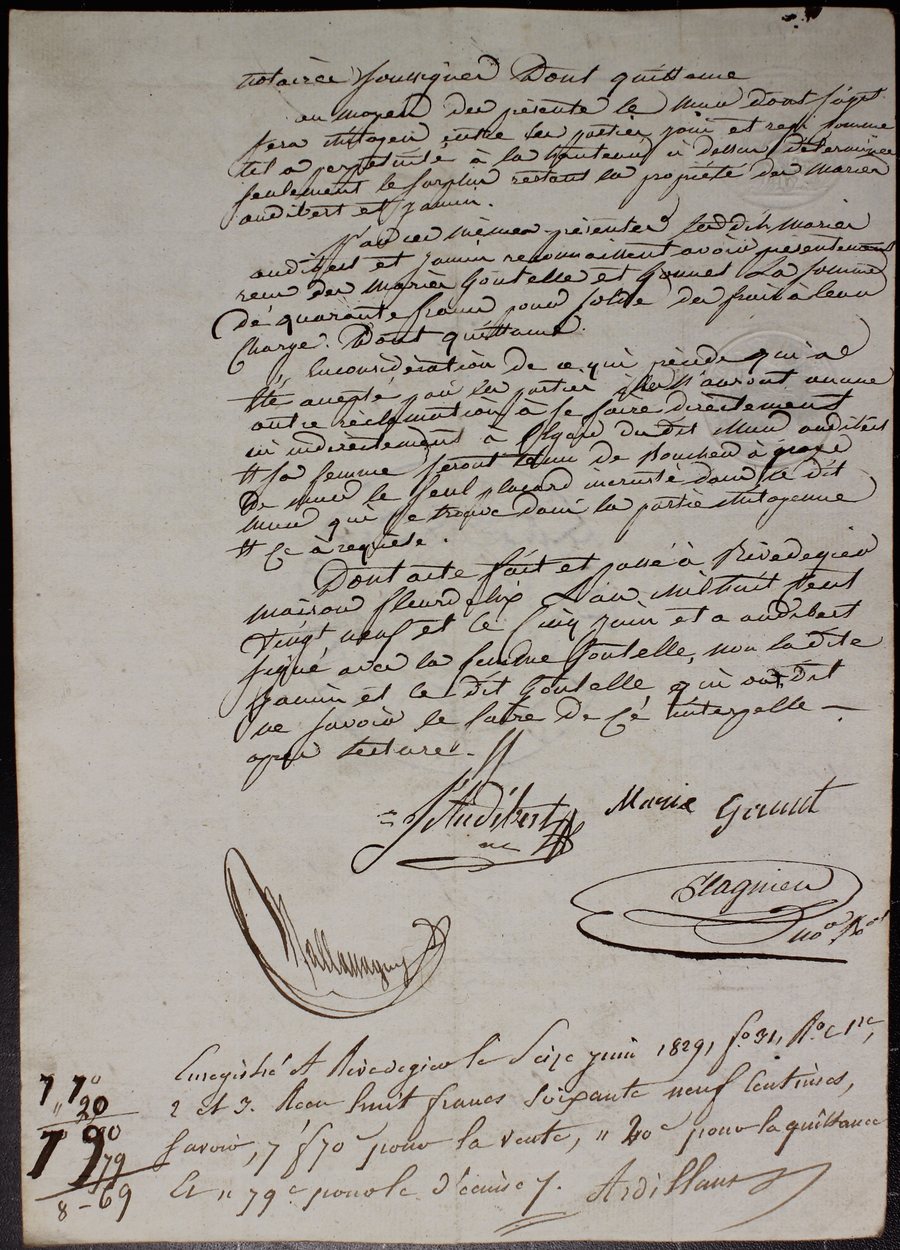 notaires soussignés Dont quittance
au moyen des présente le mur dont s'agit
sera mitoyen entre les parties pour et
tel a perpétuité à la hauteur ci dessus déterminée
seulement le surplus restant la propriété des mariés
audibert et jamin.
Par ces mêmes présentes lesdits mariés
audibert et jamin reconnaissent avoir présentement
reçu des mariés Goutelle et Gonnet La somme
de quarante francs pour solde des frais à leur
Charge. Dont quittance.
En considération de ce qui précède qui a
été accepté par les parties elles n'auront aucune
autre réclamation à se faire directement
ni indirectement à l'Egard du dit Mur audibert
et sa femme seront tenu de boucher à
de mur le seul placard incrusté dans le dit
mur qui se trouve dans la partie mitoyenne
et Ce à
Dont acte fait et passé à Rivedegier
maison fleurdelix L'an mil huit cent
vingt neuf et le Cinq juin et a audibert
signé avec la femme Goutelle, non la dite
jamin et le dit Goutelle qui ont dit
ne savoir le faire de Ce interpellé —
après lecture.
J Audibert Marie Gounot
Flagnieu
no.re R.al
Enregistré A Rivedegier le Seize juin 1829, f.o 31, R.o c. 1re,
2 et 3. Reçu huit francs soixante neuf Centimes,
Savoir, 7 f 70c pour la vente, " 20c pour la quittance
Et " 79c pour le Décime.
7 70
" 20
7 90
79
8 - 69